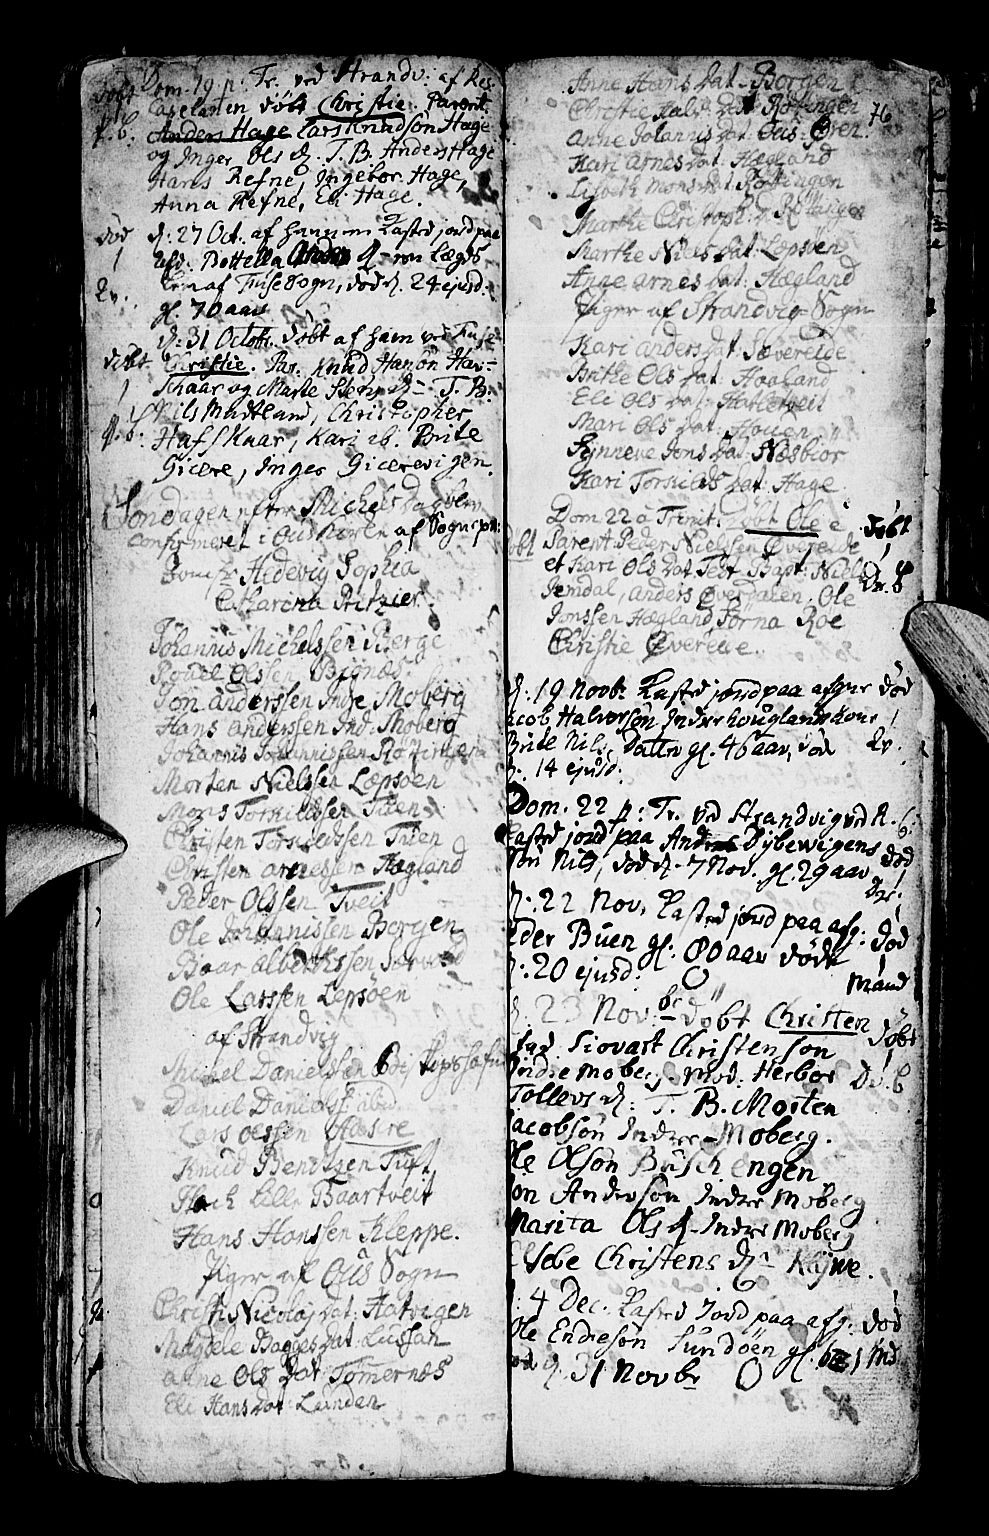 Dom. 19 p: Tr. ved Strandv: af Res
døbt Capelanen døbt Christie. Parent
q. b. Anders Hage Lars Knudson Hage
og Inger Ols d. T. B. Anders Hage
Hans Refne Ingebor Hage,
Anna Refne, Eli Hage.
død d: 27 Oct. af hannem Kasted jord paa
1 Bottella d -
Qv. af Fuse Sogn, død d. 24 ejusd:
gl. 70 aar
d: 31 Octob. døbt af ham ved Fuse
døbt Christie. Par. Knud Hanson Hav-
1 schaar og Marte d - T. B.
Nils Madtland, Christopher
q. b. Hafskaar, Kari ib. Brite
Gicere, Inger Gicerevigen.
Søndagen efter Michels Dag blev
confirmeret i Ous Kirke af Sogne pr:
Jomfr Hedevig Sophia
Catharina Ritzier.
Johannis Michelssen Berge
Pouel Olssen Bronæs
Jon Anderssen Indre Moberg
Hans Anderssen Ind: Moberg
Johannis Johannissen Røttingen
Morten Nielssen Læpsøen
Mons Torkildssen Tuen
Christen Torkildssen Tuen
Christen Arnessen Hægland
Peder Olssen Tveit
Ole Johannissen Bergen
Baar Alberthssen
Ole Larssen Lepsøen
af Strandvig
Michel Danielssen
Daniel Danielsf ibid.
Lars Olssen Aasre
Knud Bentzen Tuft
Lille Baartveit
Hans Hanssen Kleppe.
Piger af Ous Sogn
Christi Nicolaj dat: Hatvigen
Magdele Bagges dat Lussan
Anne Ols dat Tømernæs
Eli Hans dat Lunden
Anne Hans dat: Borgen
Christie dat Røttingen 76
Anne Johannis dat Ous: Øren
Kari Arnes dat Hægland
Lisbeth Mons dat Røttingen
Marthe Christoph: d Røttingen
Marthe Niels dat: Lepsøen
Anne Arnes dat: Hægland
Piger af Strandvig Sogn
Kari Anders dat: Sævereide
Brithe Ols dat Haaland
Eli Ols dat: Hatletveit
Mari Ols dat: Houen
Synneve Jons dat: Næsbiør
Kari Torkilds dat: Hage
Dom 22 a Trinit: døbt Ole è døbt
Parent Peder Nielssen Øvereide 1
et Kari Ols dat Test Bapt: Niels
Jemdal, Anders Øverdalen. Ole
Jonssen Hægland Jørna Roe
Christie Øvereide.
d: 19 Novbr Kasted jord paa afgne død
Jacob Halversøn Indre houglands kone 1
Brite Nils Datter gl. 46 aar, død Qv.
d. 14 ejusd:
Dom. 22 p: Tr. ved Strandvig ved R. C:
Kasted jord paa Anders Dybevigens
Søn Nils, død d. 7 Nov. gl. 29 aar død
d. 22 Nov. Kasted jord paa afg: død
Peder Buen gl. 80 aar døde 1
d. 20 ejusd: Mand
d. 23 Nov.br døbt Christen døbt
fad. Siovart Christenson 1
Indre Moberg. Mod: Herbor
Tollevs d: T. B. Morten
Jacobson Indre Moberg.
Ole Olson Buschengen
Jon Anderson Indre Moberg
Marita Ols d Indre Moberg
Elsebe Christens d
d: 4 Dec. Kasted Jord paa afg: død
Ole Endreson Sundøen gl. 1 Md
død d. 31 Novbr